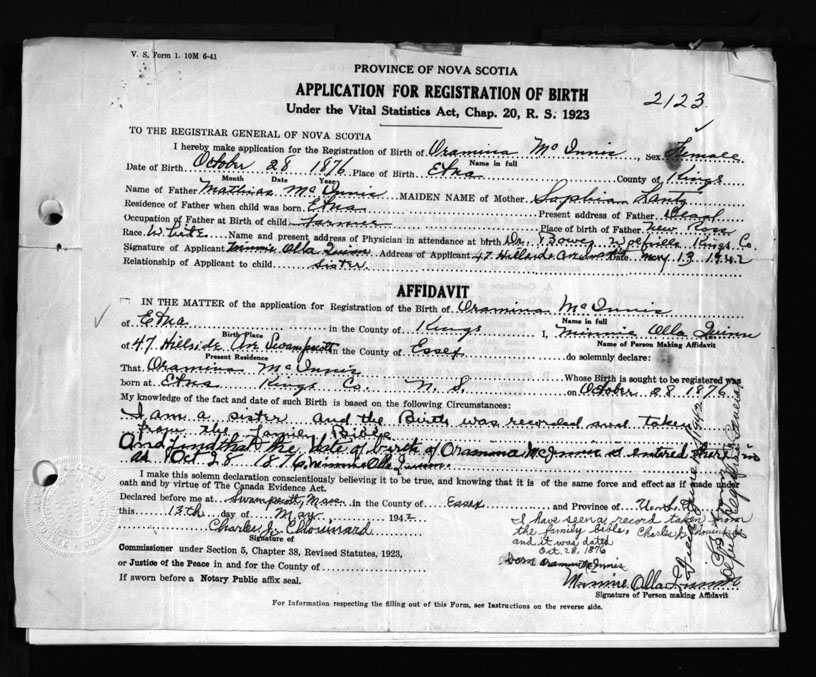 V. S. Form 1. 10M 6-41
PROVINCE OF NOVA SCOTIA
APPLICATION FOR REGISTRATION OF BIRTH
2123
Under the Vital Statistics Act, Chap. 20, R. S. 1923
TO THE REGISTRAR GENERAL OF NOVA SCOTIA
I hereby make application for the Registration of Birth of Oramina McInnis, Sex Female
Name in full
Date of Birth October 28 1876 Place of Birth Etna County of Kings
Month Date Year
Name of Father Mathias McInnis MAIDEN NAME of Mother Sophia Lantz
Residence of Father when child was born Etna Present address of Father Dead
Occupation of Father at Birth of child Farmer Place of birth of Father New Ross
Race White Name and present address of Physician in attendance at birth Dr. Bowes Wolfville Kings Co.
Signature of Applicant Minnie Olla Quinn Address of Applicant 47 Hillside Ave Date May 13 1942
Relationship of Applicant to child sister
AFFIDAVIT
IN THE MATTER of the application for Registration of the Birth of Oramina McInnis
Name in full
of Etna in the County of Kings I, Minnie Olla Quinn
Birth Place Name of Person Making Affidavit
of 47 Hillside Ave Swampscott in the County of Essex do solemnly declare:
Present Residence
That Oramina McInnis Whose Birth is sought to be registered was
born at Etna Kings Co. N. S. on October 28 1876
My knowledge of the fact and date of such Birth is based on the following Circumstances:
I am a sister and the Birth was recorded and taken
from the family Bible
And find that the date of birth of Oramina McInnis is entered there in
as Oct 28 1876 Minnie Olla Quinn.
I make this solemn declaration conscientiously believing it to be true, and knowing that it is of the same force and effect as if made under
oath and by virtue of The Canada Evidence Act.
Declared before me at Swampscott, Mass in the County of Essex and Province of U.S.A.
this 13th day of May 1942
Charles J. Chouinard
Signature of
I have seen a record taken from
the family bible, Charles J. Chouinard
and it was dated
Oct. 28, 1876
Born Oramina McInnis
Commissioner under Section 5, Chapter 38, Revised Statutes, 1923,
or Justice of the Peace in and for the County of
If sworn before a Notary Public affix seal.
Minnie Olla Quinn
Signature of Person making Affidavit
For Information respecting the filling out of this Form, see Instructions on the reverse side.
Deputy Registrar General